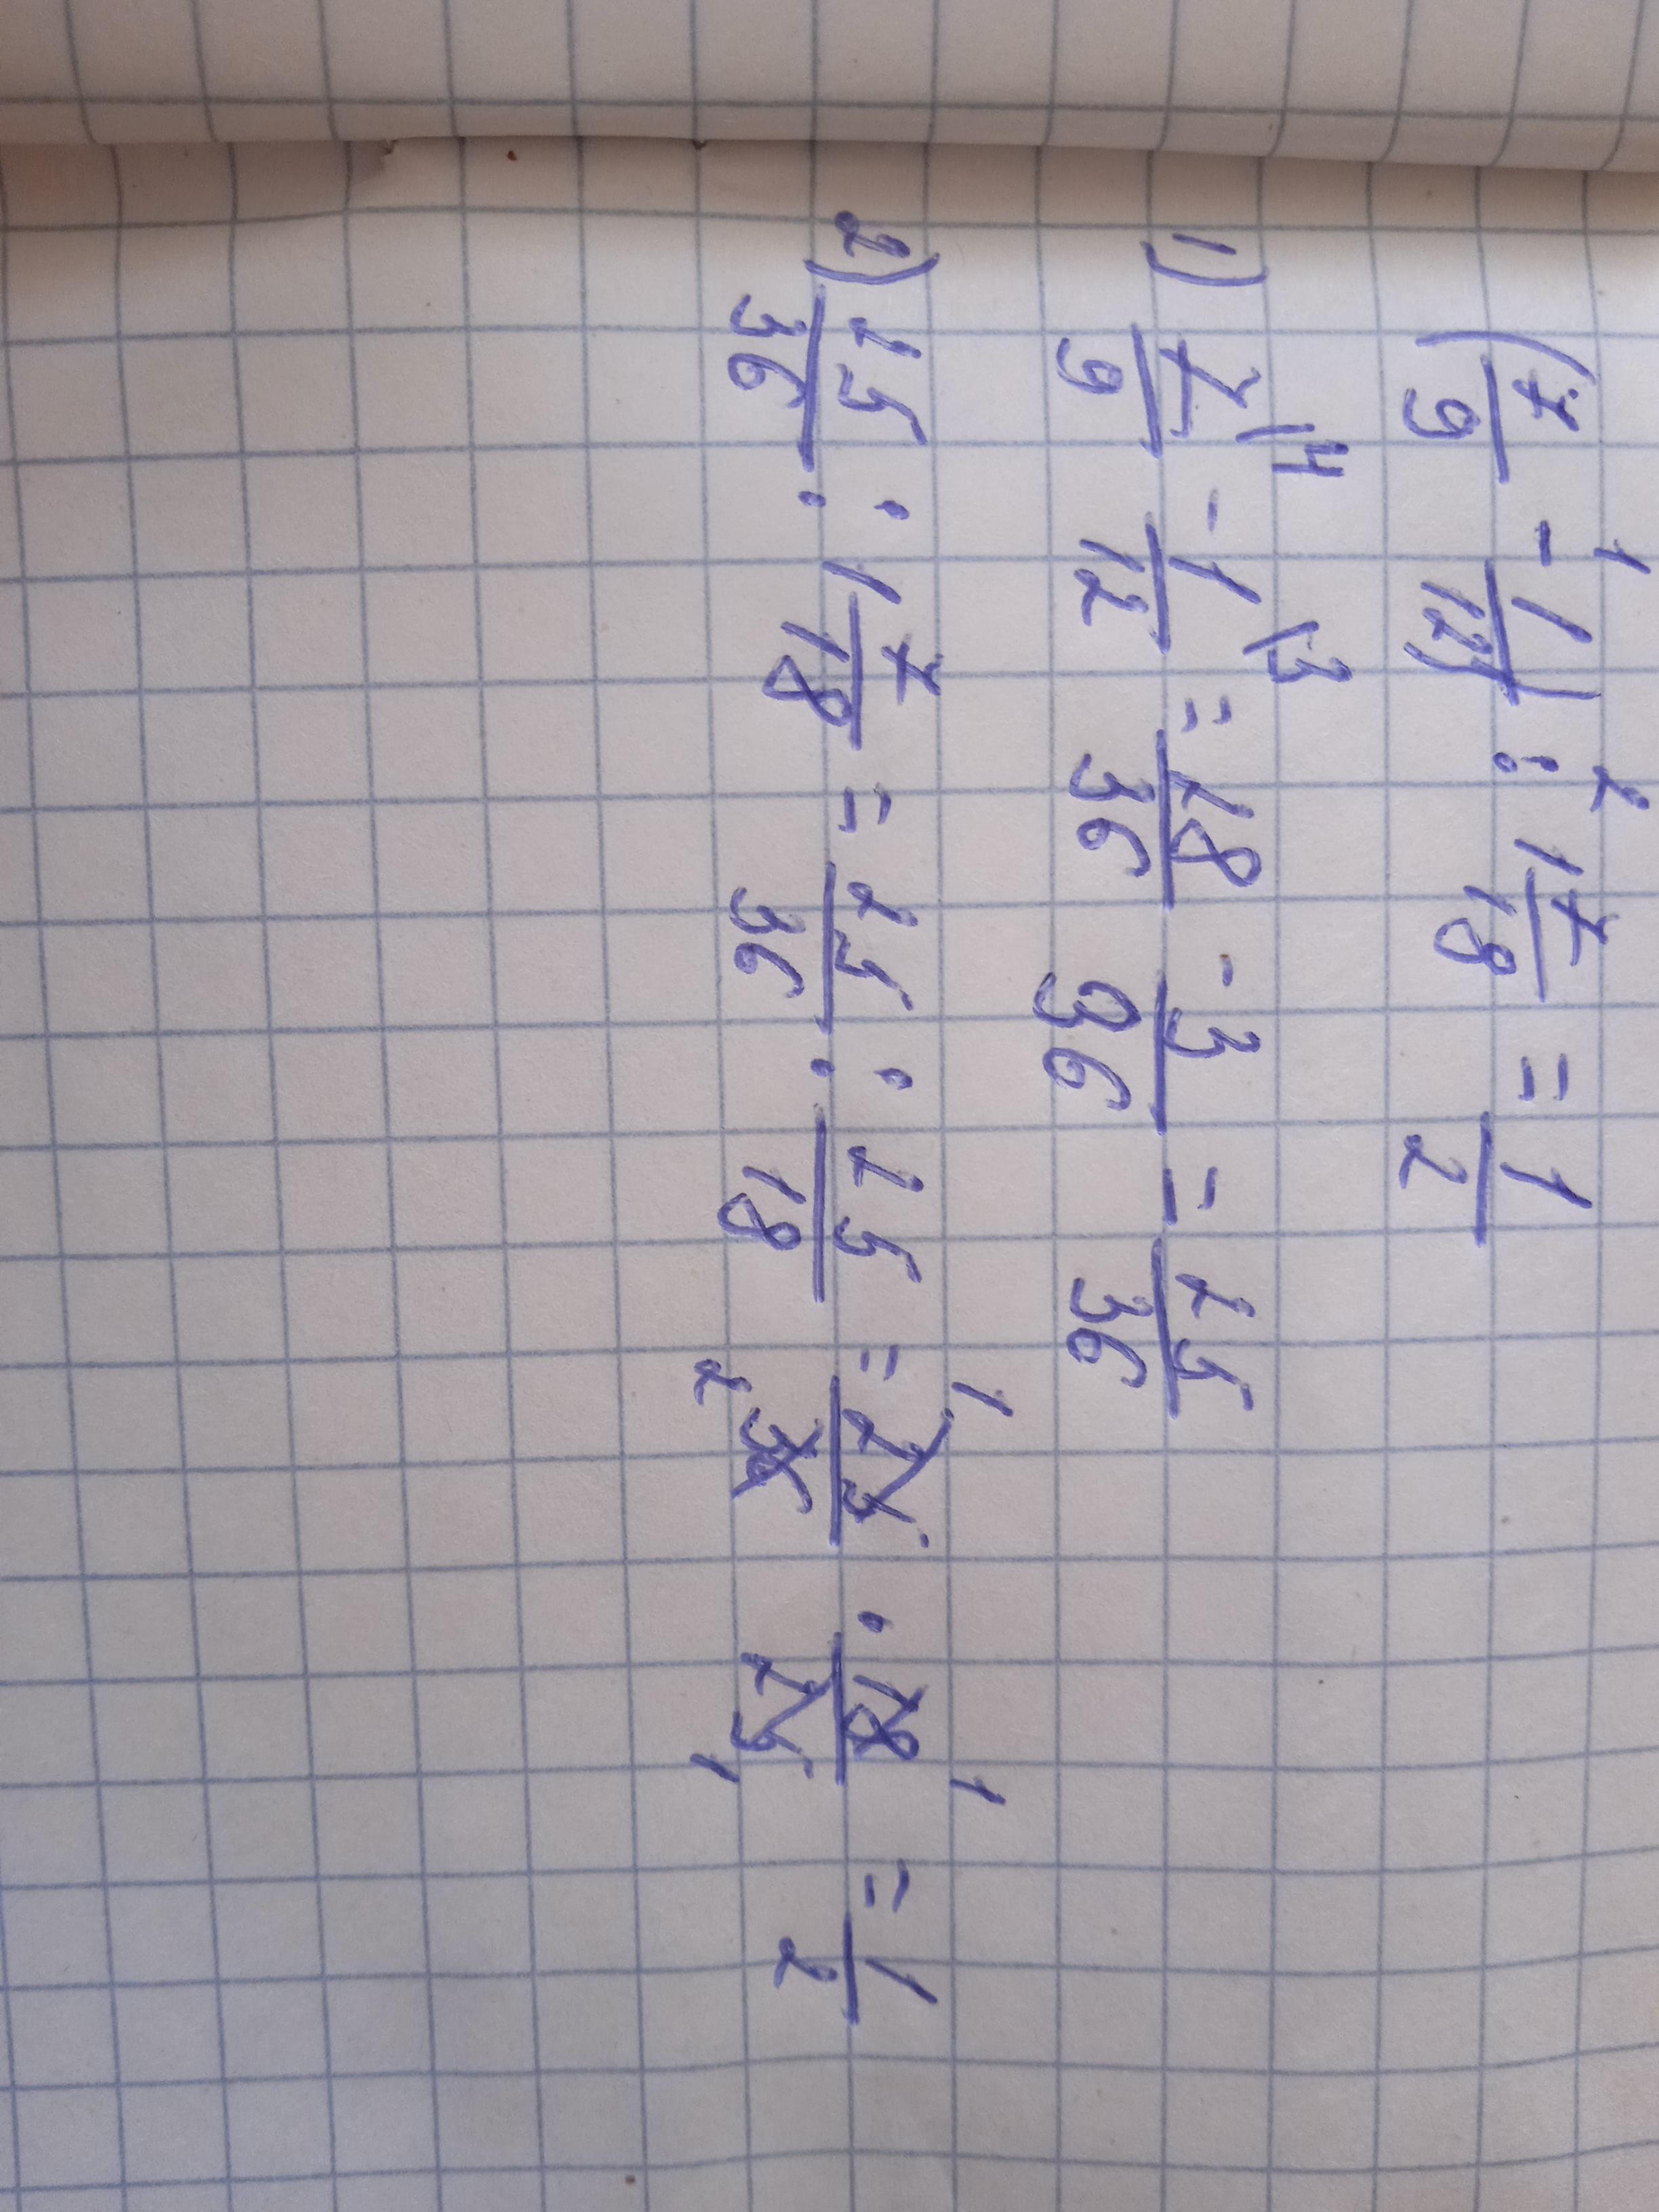 1 2
(7/9 - 1/12) : 1 7/18 = 1/2
1) 7/9 \4 - 1/12 \3 = 28/36 - 3/36 = 25/36
2) 25/36 : 1 7/18 = 25/36 : 25/18 = 1 25/36 2 · 18/25 1 1 = 1/2